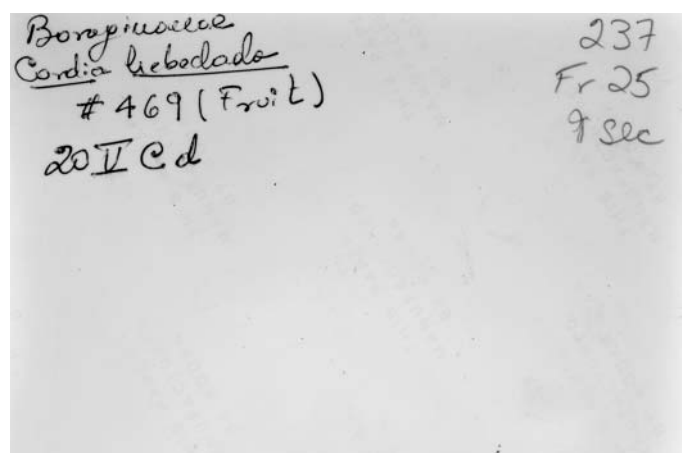 Boraginaceae
Cordia liebeclada
# 469 (Fruit)
20 V C d
237
Fr 25
9 sec